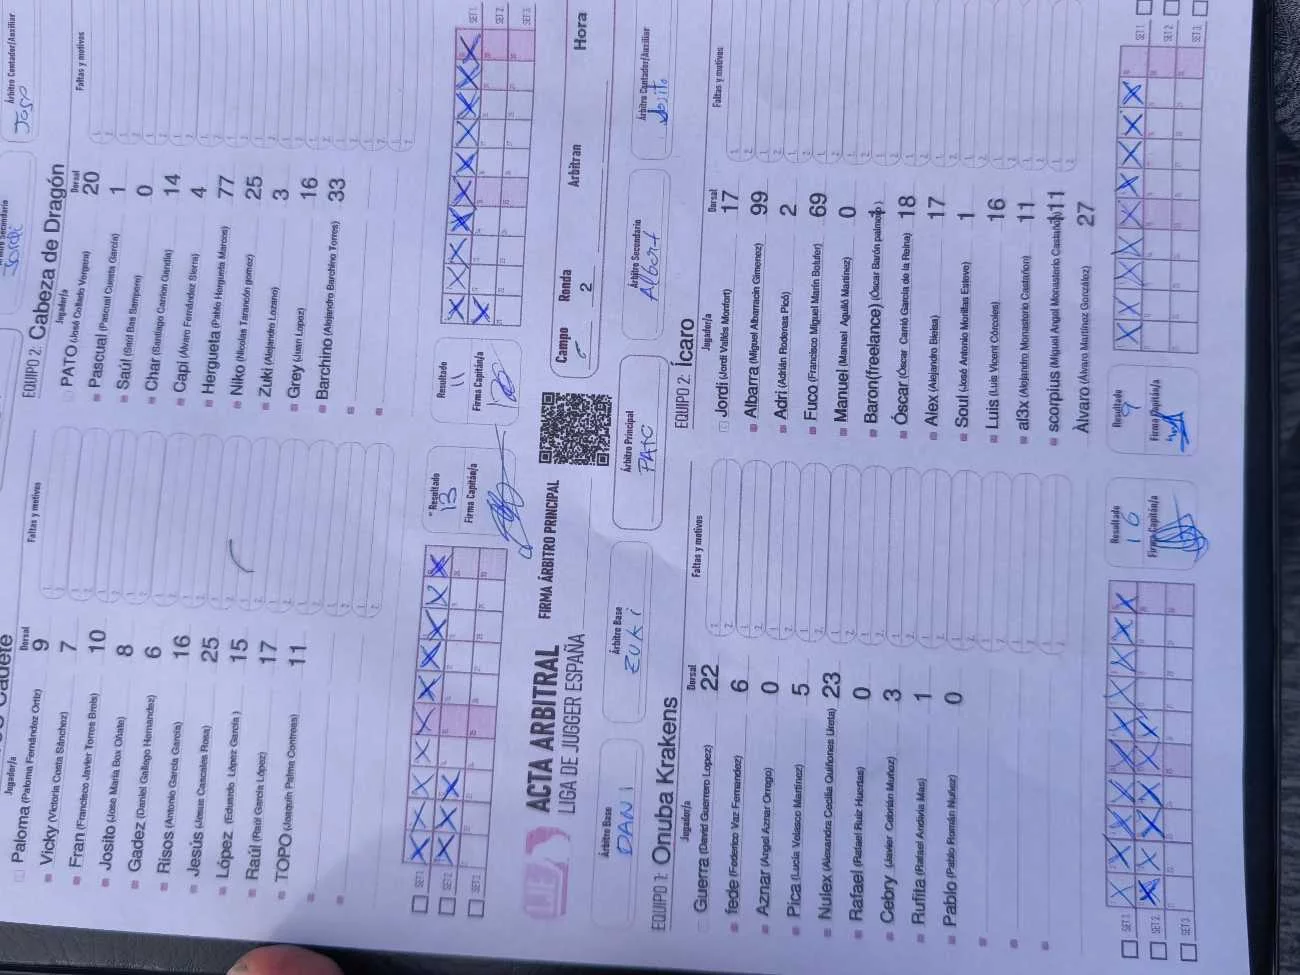 Jugador/a Dorsal Faltas y motivos
Paloma (Paloma Fernández Ortiz) 9
Vicky (Victoria Costa Sánchez) 7
Fran (Francisco Javier Torres Brels) 10
Josito (Jose María Box Oñate) 8
Gadez (Daniel Gallego Hernandez) 6
Risos (Antonio García García) 16
Jesús (Jesus Cascales Rosa) 25
López (Eduardo López García) 15
Raúl (Raúl García López) 17
TOPO (Joaquín Palma Contreas) 11
SET 1
SET 2
SET 3
Resultado
13
Firma Capitán/a
Árbitro Secundario
Jordi
Árbitro Contador/Auxiliar
Joso
EQUIPO 2: Cabeza de Dragón
Jugador/a Dorsal Faltas y motivos
PATO (José Collado Vergara) 20
Pascual (Pascual Cuesta García) 1
Saúl (Saúl Bas Sampere) 0
Char (Santiago Carrion Gandia) 14
Capi (Álvaro Fernández Sierra) 4
Hergueta (Pablo Hergueta Marcos) 77
Niko (Nicolas Tarancón gomez) 25
Zuki (Alejandro Lozano) 3
Grey (Juan Lopez) 16
Barchino (Alejandro Barchino Torres) 33
Resultado
11
Firma Capitán/a
SET 1
SET 2
SET 3
ACTA ARBITRAL
LIGA DE JUGER ESPAÑA
FIRMA ÁRBITRO PRINCIPAL
Campo Ronda 2 Arbitran Hora
Árbitro Base
DANI
Árbitro Base
ZUKI
Árbitro Principal
PATO
Árbitro Secundario
Albert
Árbitro Contador/Auxiliar
Josito
EQUIPO 1: Onuba Krakens
Jugador/a Dorsal Faltas y motivos
Guerra (David Guerrero Lopez) 22
fede (Federico Vaz Fernandez) 6
Aznar (Angel Aznar Orrego) 0
Pica (Lucía Velasco Martínez) 5
Nulex (Alexandra Cecilia Quiñones Ureta) 23
Rafael (Rafael Ruiz Huertas) 0
Cebry (Javier Cebrián Muñoz) 3
Rufita (Rafael Andivia Mas) 1
Pablo (Pablo Román Nuñez) 0
SET 1
SET 2
SET 3
Resultado
16
Firma Capitán/a
EQUIPO 2: Ícaro
Jugador/a Dorsal Faltas y motivos
Jordi (Jordi Vallés Monfort) 17
Albarra (Miguel Albarracin Gimenez) 99
Adri (Adrián Rodenas Picó) 2
Fuco (Francisco Miguel Marín Bolufer) 69
Manuel (Manuel Aguiló Martínez) 0
Baron(freelance) (Óscar Barón palmero) 1
Óscar (Óscar Carrió García de la Reina) 18
Alex (Alejandro Bleisa) 17
Soul (José Antonio Morillas Esteve) 1
Luis (Luis Vicent Córcoles) 16
al3x (Alejandro Monasterio Castañon) 11
scorpius (Miguel Angel Monasterio Castañón) 111
Àlvaro (Álvaro Martínez González) 27
Resultado
9
Firma Capitán/a
SET 1
SET 2
SET 3